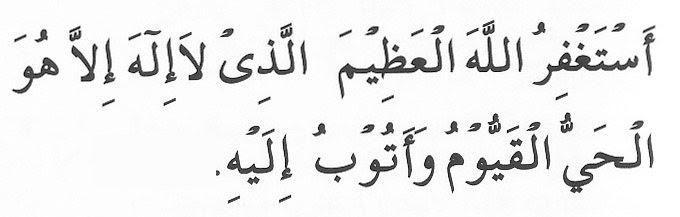 أَسْتَغْفِرُ اللَّهَ الْعَظِيْمَ الَّذِىْ لاَإِلٰهَ إِلاَّ هُوَ
الْحَيُّ الْقَيُّوْمُ وَأَتُوْبُ إِلَيْهِ.